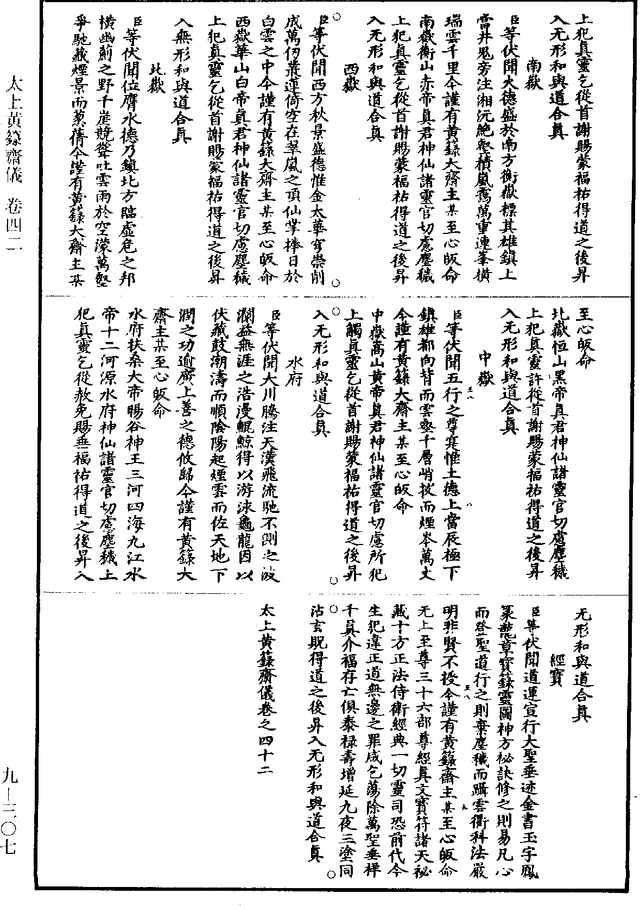 上犯真靈乞從首謝賜蒙福祐得道之後昇
入无形和與道合真
南嶽
臣等伏聞大德盛於南方衡嶽標其雄鎮上
當井鬼旁注湘沅絶壑積嵐騫萬重連峯橫
瑞雲千里今謹有黃籙大齋主某至心皈命
南嶽衡山赤帝真君神仙諸靈官切慮塵穢
上犯真靈乞從首謝賜蒙福祐得道之後昇
入无形和與道合真
西嶽
臣等伏聞西方秋景盛德惟金太華穹崇削
成萬仞叢蓮倚空在翠嵐之頂仙掌捧日於
白雲之中今謹有黃籙大齋主某至心皈命
西嶽華山白帝真君神仙諸靈官切慮塵穢
上犯真靈乞從首謝賜蒙福祐得道之後昇
入無形和與道合真
北嶽
臣等伏聞位膺水德乃鎮北方臨虛危之邦
橫幽薊之野千崖競聳吐雲雨於空濛萬壑
爭馳藏煙景而蓊蒨今謹有黃籙大齋主某
至心皈命
北嶽恒山黑帝真君神仙諸靈官切慮塵穢
上犯真靈許從首謝賜蒙福祐得道之後昇
入无形和與道合真
中嶽
臣等伏聞五行之尊寔惟土德上當辰極下
鎮雄都向背而雲壑千層峭拔而煙岑萬丈
今謹有黃籙大齋主某至心皈命
中嶽嵩山黃帝真君神仙諸靈官切慮所犯
上觸真靈乞從首謝賜蒙福祐得道之後昇
入无形和與道合真
水府
臣等伏聞大川騰注天漢飛流馳不測之波
瀾益無涯之浩漫鯤鯨得以游泳龜龍因以
伏藏鼓潮濤而順陰陽起煙雲而佐天地下
潤之功逾廣上善之德攸歸今謹有黃籙大
齋主某至心皈命
水府扶桑大帝暘谷神王三河四海九江水
帝十二河源水府神仙諸靈官切慮塵穢上
犯真靈乞從赦免賜垂福祐得道之後昇入
无形和與道合真
經寶
臣等伏聞道運宣行大聖垂迹金書玉字鳳
篆龍章寶籙靈圖神方秘訣修之則易凡心
而登聖道行之則棄塵穢而躡雲衢科法嚴
明非賢不授今謹有黃籙齋主某至心皈命
无上至尊三十六部尊經真文寶符諸天祕
藏十方正法侍衛經典一切靈司恐前代今
生犯違正道無邊之罪咸乞蕩除萬聖垂祥
千真介福存亡俱泰祿壽增延九夜三塗同
沾玄貺得道之後昇入无形和與道合真
太上黃籙齋儀卷之四十二
太上黃籙齋儀 卷四二
九—三〇七